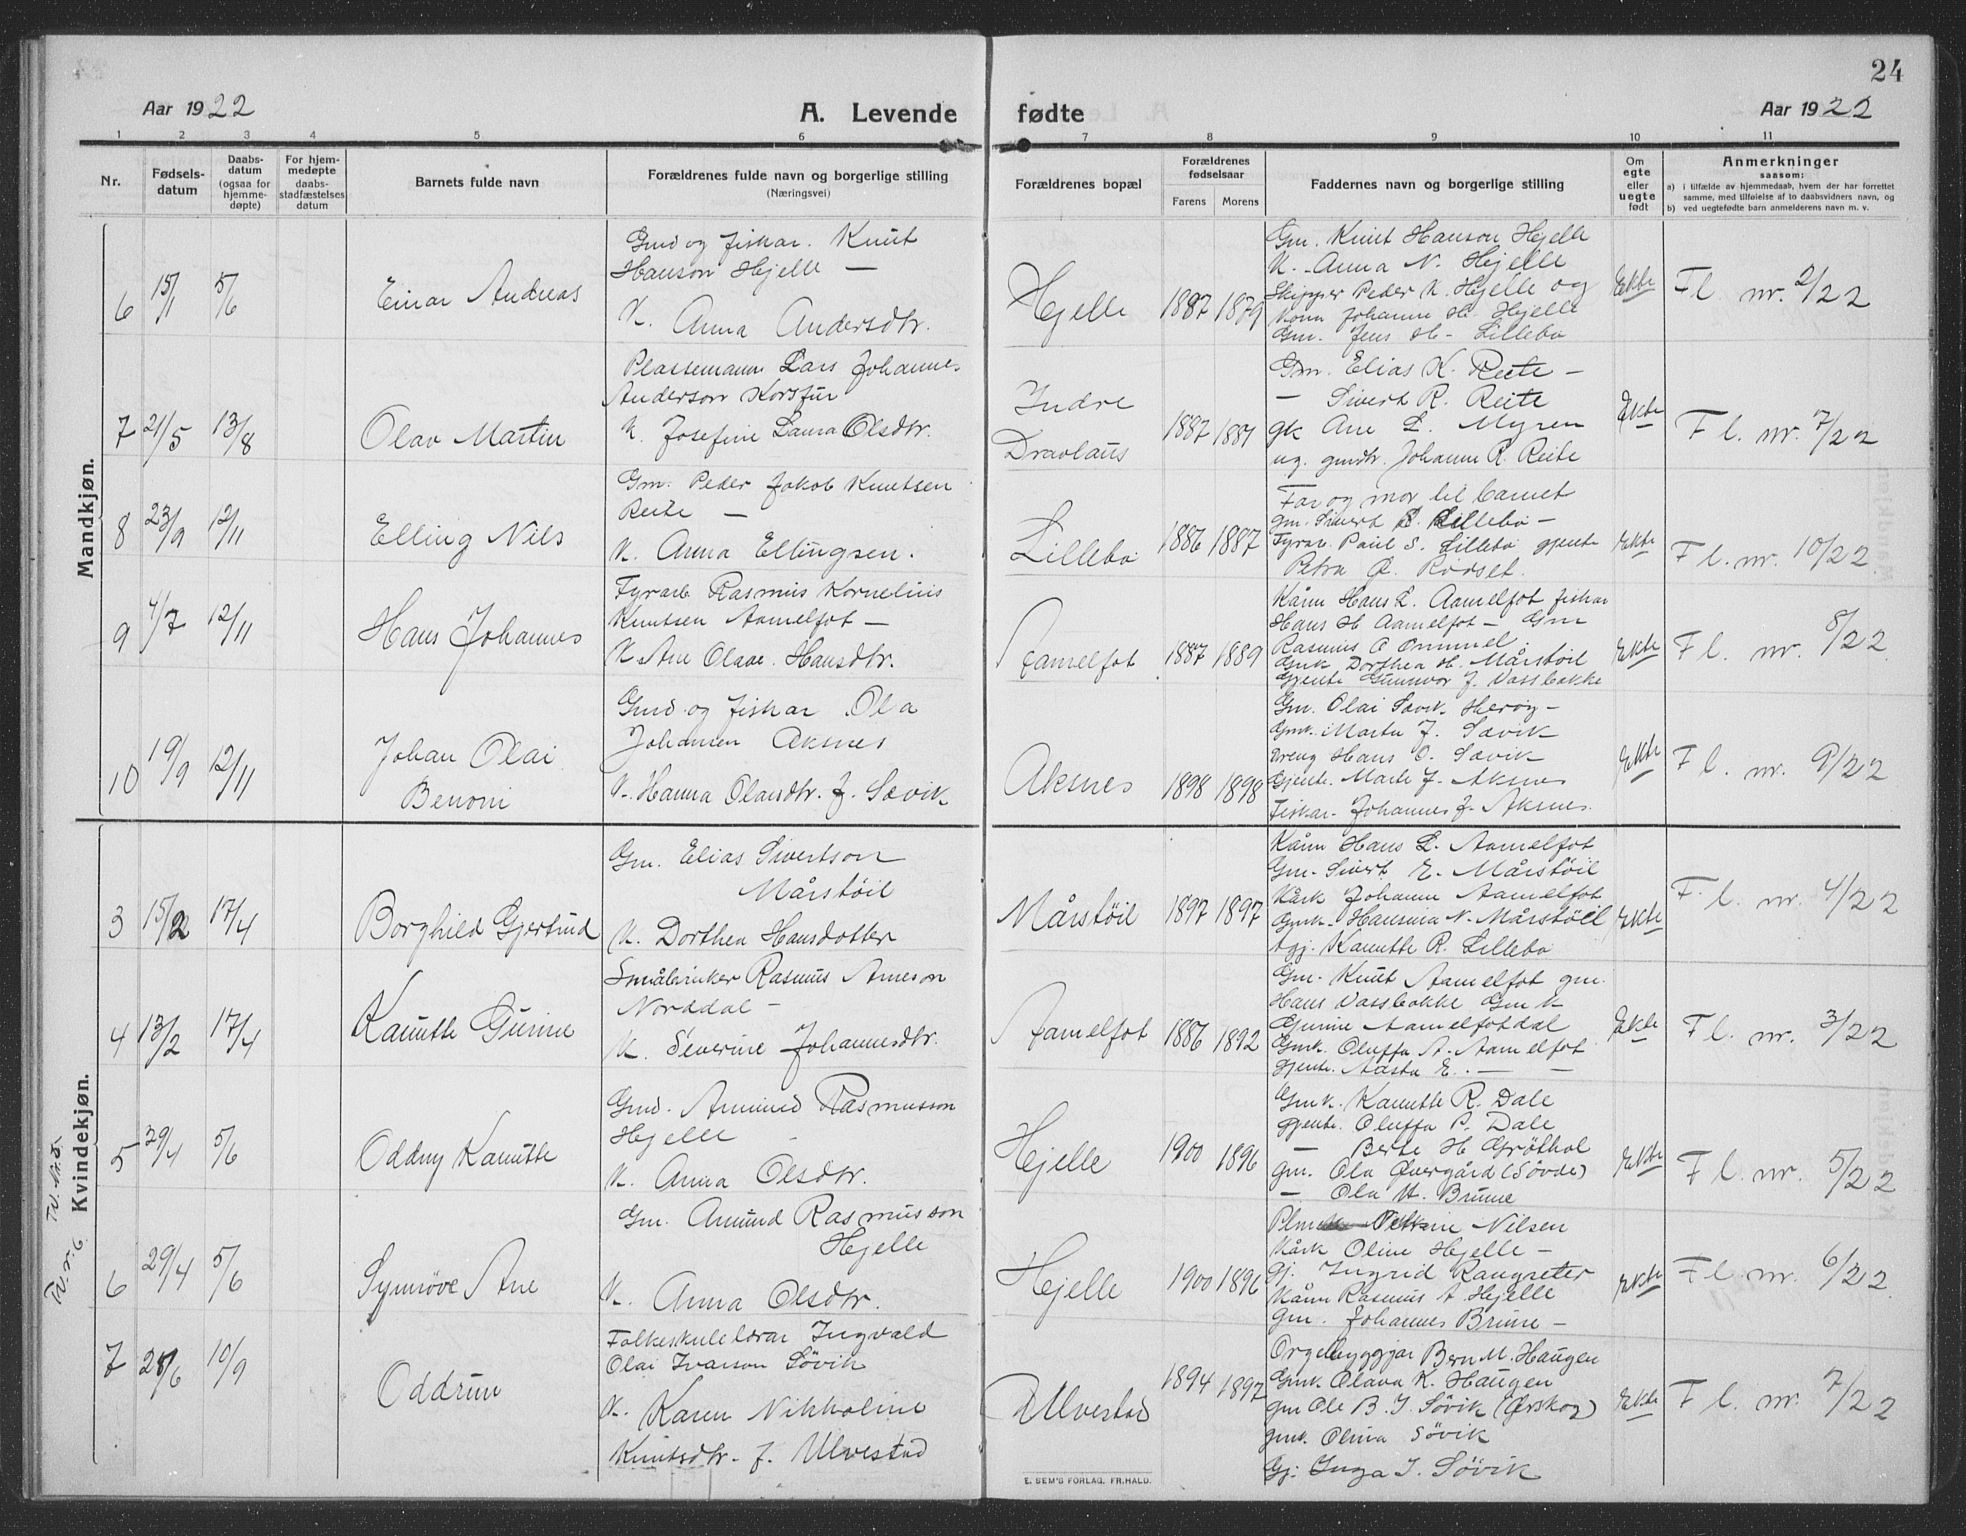 24
Aar 1922
A. Levende fødte
Aar 1922
1 2 3 4 5 6 7 8 9 10 11
Nr.
Fødsels-
datum
Daabs-
datum
(ogsaa for
hjemme-
døpte)
For hjem-
medøpte
daabs-
stadfæstelses
datum
Barnets fulde navn
Forældrenes fulde navn og borgerlige stilling
(Næringsvei)
Forældrenes bopæl
Forældrenes
fødselsaar
Farens Morens
Faddernes navn og borgerlige stilling
Om
egte
eller
uegte
født
Anmerkninger
saasom:
a) i tilfælde av hjemmedaab, hvem der har forrettet
samme, med tilføielse af to daabsvidners navn, og
b) ved uegtefødte barn anmelderens navn m. v.
Mandkjøn.
6 15/1 5/6
Einar Andreas
Gmd og fiskar. Knut
Hanson Hjelle —
K. Anna Andersdtr.
Hjelle
1887 1879
Gm. Knut Hanson Hjelle
K. Anna N. Hjelle
Skipper Peder K. Hjelle og
Kona Johanne H. Hjelle
Gm. Jens H. Lillebø
Ekte
Fl. nr. 2/22
7 21/5 13/8
Olav Martin
Plassemann Lars Johannes
Anderson Korsfur
K. Josefine Laura Olsdtr.
Indre
Dravlaus
1887 1881
Gm. Elias K. Reite —
— Sivert R. Reite
gk Ane L. Myren
ug. gmdtr. Johanne R. Reite
Ekte
Fl. nr. 7/22
8 23/9 12/11
Elling Nils
Gm. Peder Jakob Knutsen
Reite —
K. Anna Ellingsen.
Lillebø
1886 1887
Far og mor til barnet
Gm. Sivert S. Lillebø —
Fyrar. Paul S. Lillebø gjente
Petra O. Rødset.
Ekte
Fl. nr. 10/22
9 4/7 12/11
Hans Johannes
Fyrarb Rasmus Kornelius
Knutsen Aamelfot —
K. Ane Olave Hansdtr.
Aamelfot
1887 1889
Kårm Hans L. Aamelfot fiskar
Hans H Aamelfot — Gm
Rasmus O Ommel.
Gmk Dorthea H. Mårstøil
Gjente Gunnvor J. Vassbakke
Ekte
Fl. nr. 8/22
10 19/9 12/11
Johan Olai
Benoni
Gmd og fiskar Ola
Johansen Aksnes
K. Hanna Olausdtr. f. Sævik
Aksnes
1898 1898
Gm. Olai Sævik Herøy —
Gmk. Marta J. Sævik
Dreng Hans O. Sævik
Gjente. Marte J. Aksnes
Fiskar. Johannes J. Aksnes.
Ekte
Fl. nr. 9/22
Kvindekjøn.
3 15/2 17/4
Borghild Gjertrud
Gm. Elias Sivertson
Mårstøil
K. Dorthea Hansdotter
Mårstøil
1897 1897
Kårm Hans L. Aamelfot
Gm. Sivert E. Mårstøil
Kårk Johanne Aamelfot
Gmk. Hansina N. Mårstøil
tgj. Kanutte R. Lillebø
Ekte
Fl. nr. 4/22
4 13/2 17/4
Kanutte Gurine
Småbruker Rasmus Arneson
Norddal —
K. Severine Johannesdtr.
Aamelfot
1886 1892
Gm. Knut Aamelfot gm.
Hans Vassbakke Gmk
Gurine Aamelfotdal
Gmk. Oluffa A. Aamelfot
gjente. Aasta E. — —
Ekte
Fl. nr. 3/22
Tv. nr. 5.
5 29/4 5/6
Oddny Kanutte
Gmd. Amund Rasmusson
Hjelle —
K. Anna Olsdtr.
Hjelle
1900 1896
Gmk. Kanutte R. Dale
gjente. Oluffa P. Dale
— Berte H Grøthol
gm. Ola Øvergård (Søvde)
— Ola H. Brune
Ekte
Fl. nr. 5/22
Tv. nr. 6
6 29/4 5/6
Synnøve Ane
Gm. Amund Rasmusson
Hjelle
K. Anna Olsdtr.
Hjelle
1900 1896
Plm Petrine Nilsen
Kårk Oline Hjelle —
Gj. Ingrid Rangseter
Kårm Rasmus A Hjelle
Gm. Johannes Brune —
Ekte
Fl. nr. 6/22
7 25/6 10/9
Oddrun
Folkeskulelærar Ingvald
Olai Ivarson Søvik
K. Karen Nikholine
Knutsdtr. f. Ulvestad
Ulvestad
1894 1897
Orgelbyggjar Bern M. Haugen
Gmk. Olava K. Haugen
Gm Ole B. I. Søvik (Ørskog)
gmk. Olina Søvik
Gj. Inga I. Søvik
Ekte
Fl. nr. 7/22
E. SEM'S FORLAG, FR.HALD.